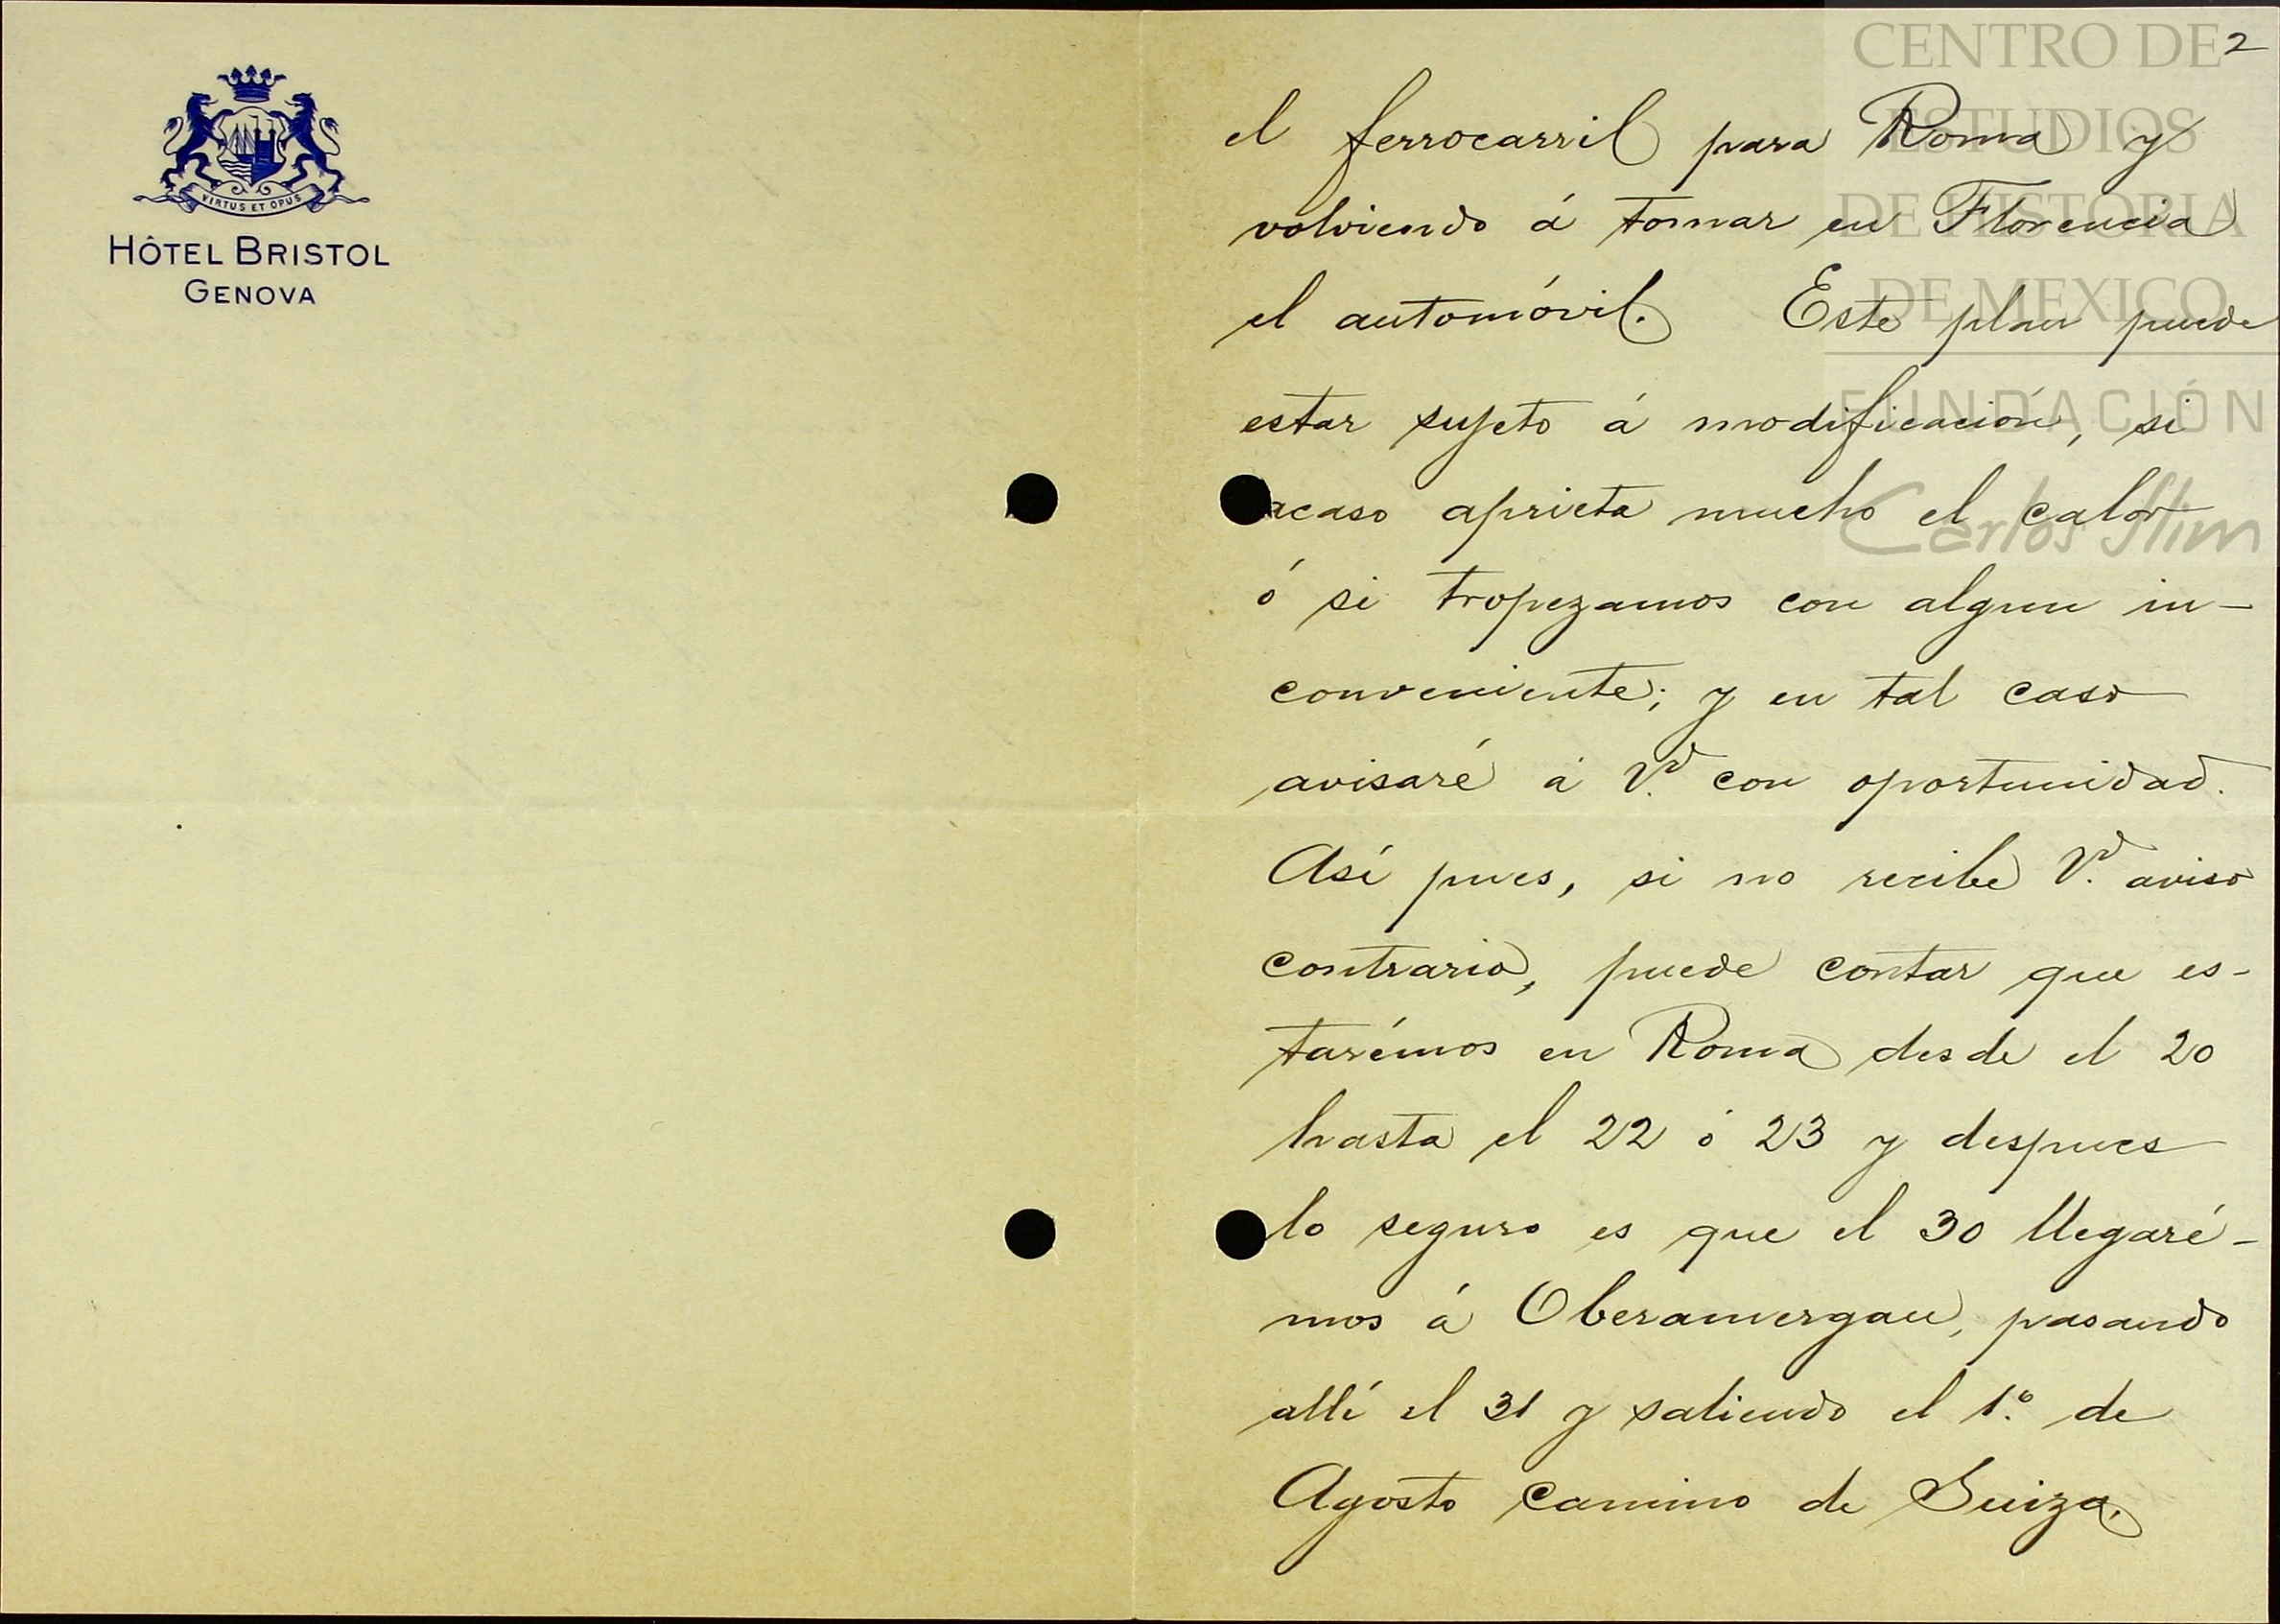 VIRTUS ET OPUS
HÔTEL BRISTOL
GENOVA
CENTRO DE
ESTUDIOS
DE HISTORIA
DE MEXICO
FUNDACIÓN
Carlos Slim
2
el ferrocarril para Roma y
volviendo á tomar en Florencia
el automóvil. Este plan puede
estar sujeto á modificación, si
acaso aprieta mucho el calor
ó si tropezamos con algun in-
conveniente; y en tal caso
avisaré á Vd. con oportunidad.
Así pues, si no recibe Vd. aviso
contrario, puede contar que es-
tarémos en Roma desde el 20
hasta el 22 ó 23 y despues
lo seguro es que el 30 llegaré-
mos á Oberamergau, pasando
allí el 31 y saliendo el 1º. de
Agosto camino de Suiza.